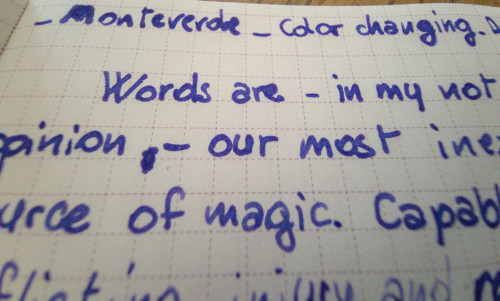 - Monteverde - Color changing.
Words are - in my not
pinion, - our most ine
urce of magic. Capab
injury and